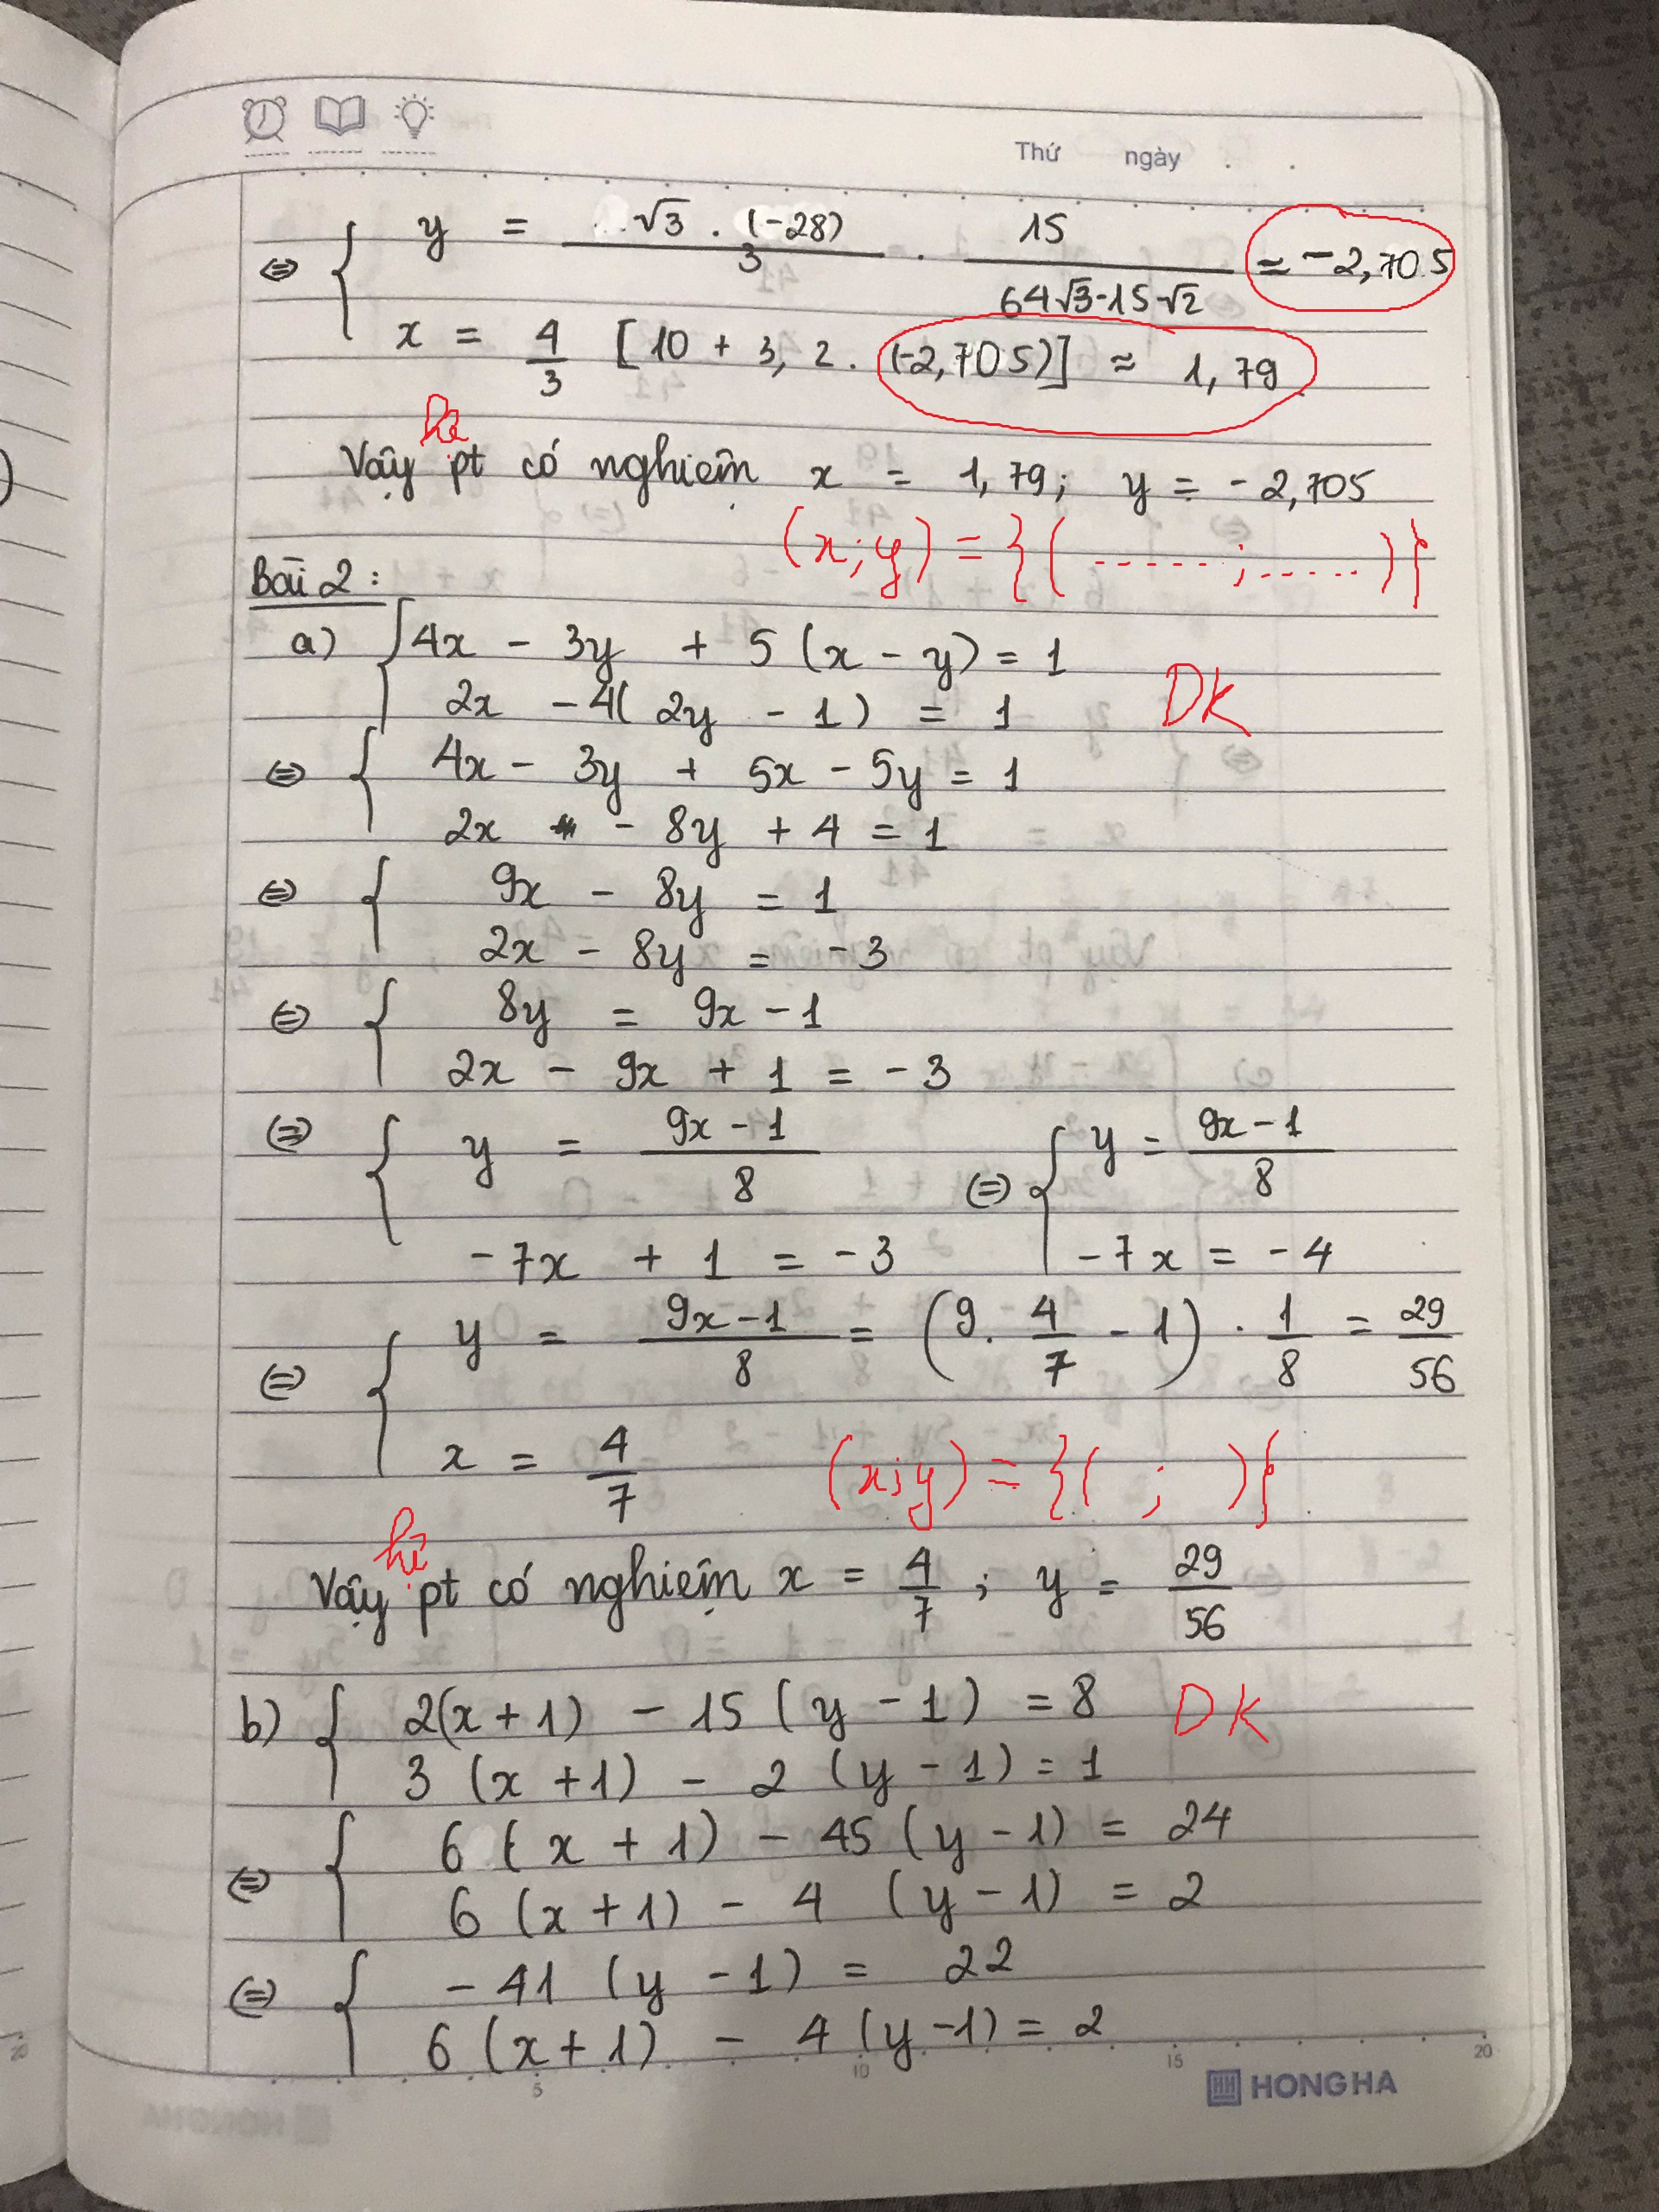 Thứ ngày . .
⇔ { y = √3 . (-28) / 3 . 15 / 64√3-15√2 = -2,705
x = 4/3 [10 + 3, 2. (-2,705)] ≈ 1,79
hệ
Vậy pt có nghiệm x = 1,79; y = -2,705
(x;y) = {( ...... ; ...... )}
Bài 2:
a) { 4x - 3y + 5 (x - y) = 1
2x - 4( 2y - 1) = 1 DK
⇔ { 4x - 3y + 5x - 5y = 1
2x - 8y + 4 = 1
⇔ { 9x - 8y = 1
2x - 8y = -3
⇔ { 8y = 9x - 1
2x - 9x + 1 = -3
⇔ { y = 9x - 1 / 8 ⇔ { y = 9x - 1 / 8
-7x + 1 = -3 -7x = -4
⇔ { y = 9x - 1 / 8 = (9. 4/7 - 1) . 1/8 = 29/56
x = 4/7 (x;y) = {( ; )}
hệ
Vậy pt có nghiệm x = 4/7 ; y = 29/56
b) { 2(x + 1) - 15 (y - 1) = 8 DK
3 (x + 1) - 2 (y - 1) = 1
⇔ { 6 (x + 1) - 45 (y - 1) = 24
6 (x + 1) - 4 (y - 1) = 2
⇔ { -41 (y - 1) = 22
6 (x + 1) - 4 (y - 1) = 2
5 10 15 20
HH HONG HA